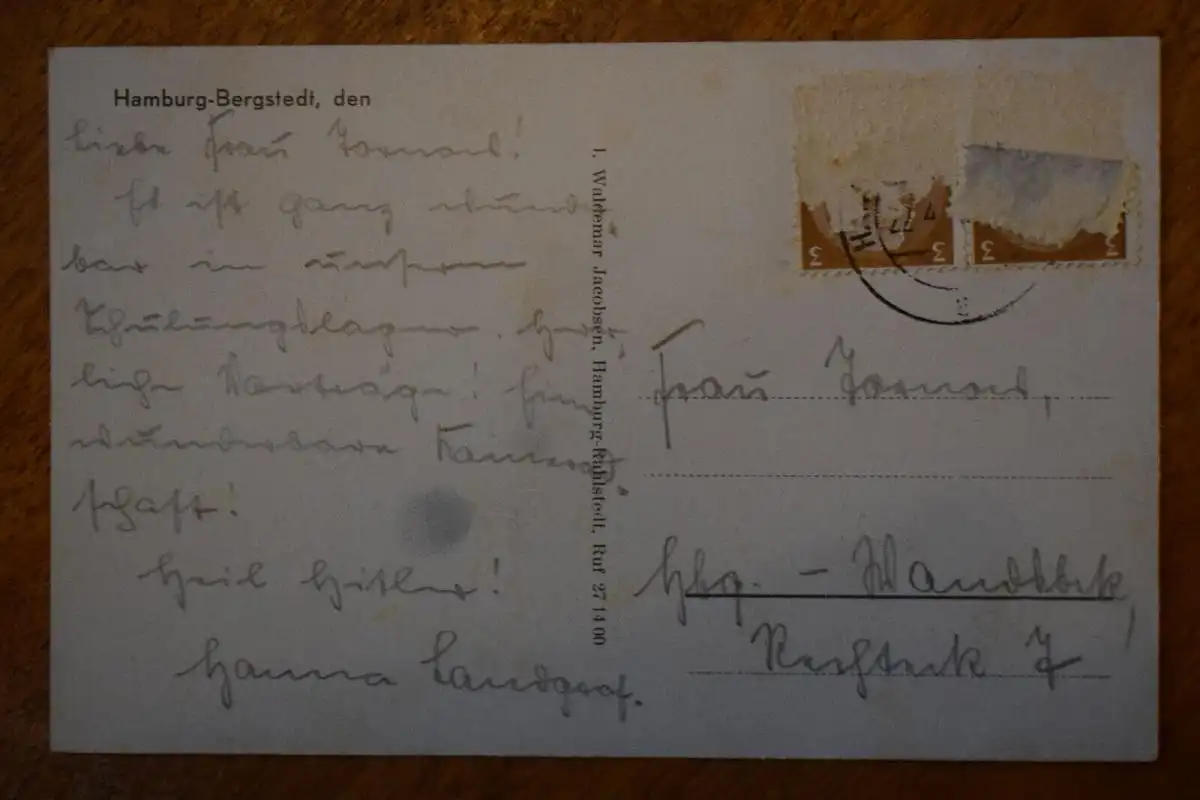 Hamburg-Bergstedt, den
Liebe Frau
Es ist ganz wunder
bar in unserem
Schulungslager. Herr-
liche Vorträge! Eine
wunderbare Kamerad-
schaft!
Heil Hitler!
Hanna Landgraf.
I. Waldemar Jacobsen, Hamburg-Rahlstedt, Ruf 27 14 00
3 3 3 3
22 4
Frau
Hbg. - Wandsbek,
Rechteck 7